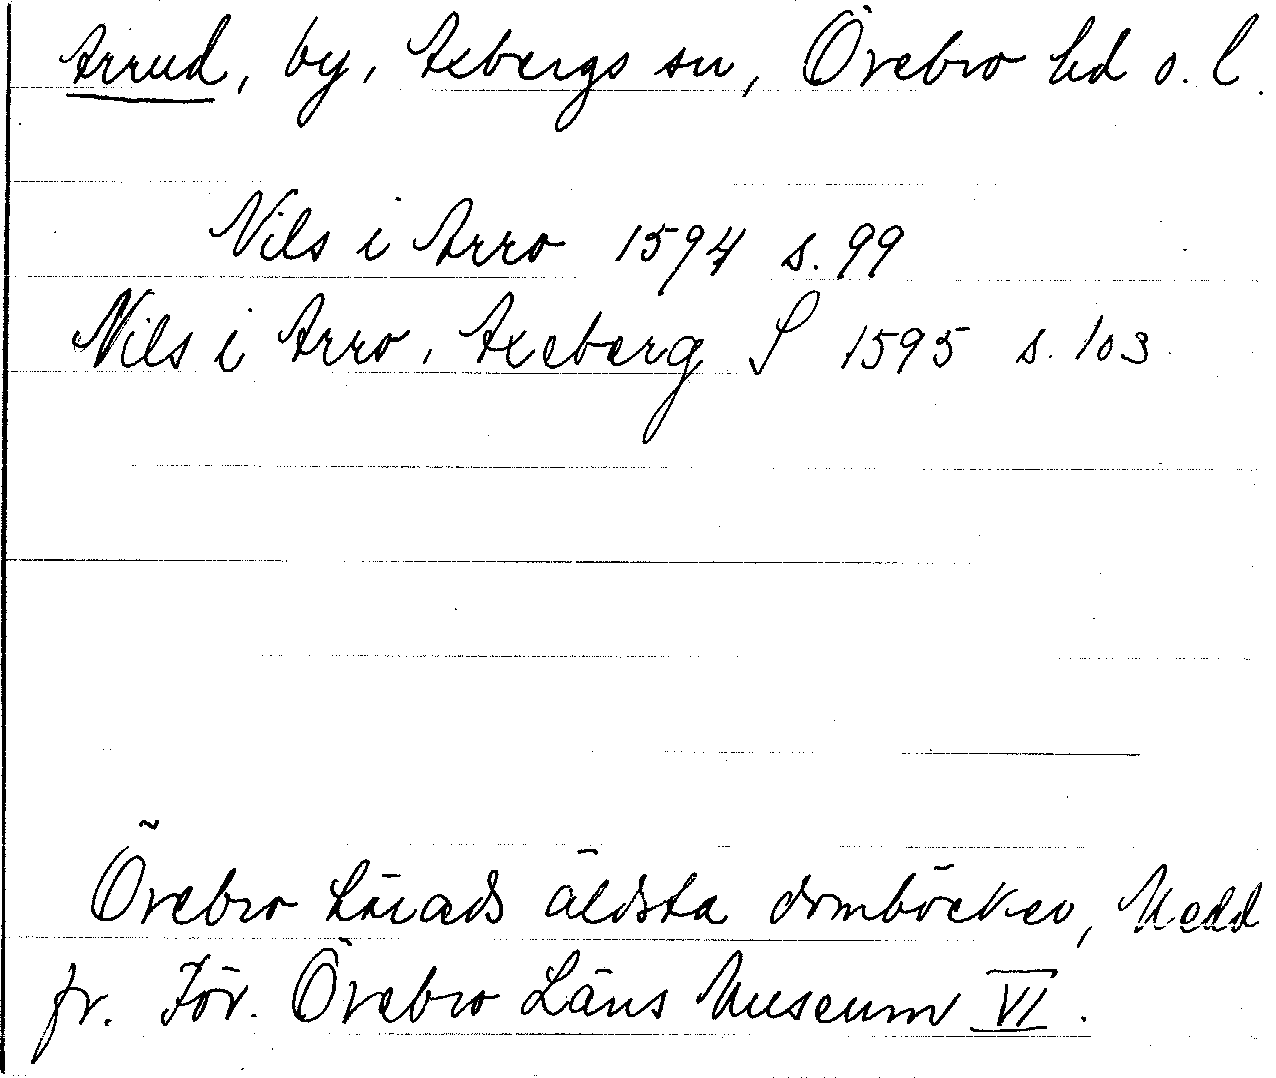 Arrud, by, Axbergs sn, Örebro hd o. l.
Nils i Arro 1594 s. 99
Nils i Arro, Axeberg S 1595 s. 103
Örebro härads äldsta domböcker, Medd
fr. För. Örebro Läns Museum VI.